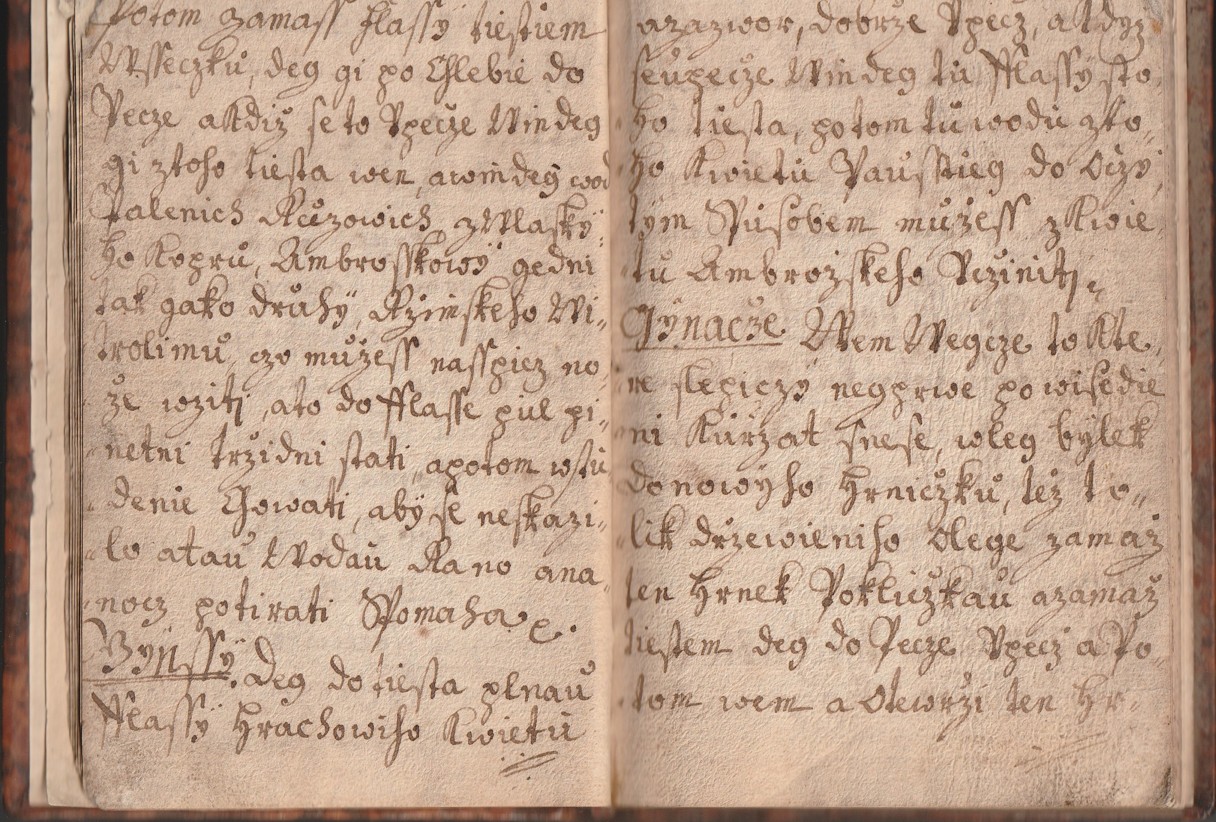 Potom zamass flassy tiestiem
Wsseczku, deg gi po Chlebie do
Pecze akdiz se to Upecze Windeg
gi ztoho tiesta wen, awindeg wod
Palenich Ruzowich, zWlasky-
ho Kopru, Ambrosskowy gedni
tak gako druhy, Rzimskeho Wi-
trolimu, czo muzess nasspicz no-
ze wziti, ato do fflasse pul pi-
netni trzidni stati, apotom wstu
denie Chowati, aby se neskazi-
lo atau Wodau Rano ana
nocz potirati Spomaha
Gynssy. Deg do tiesta plnau
fflassy hrachowiho Kwietu
azazwor, dobrze Upecz, akdyz
seupecze Windeg tu fflassy sto-
ho tiesta, potom tu wodu zto-
ho Kwietu Pausstieg do Oczy,
tym Spusobem muzess zKwie-
tu Ambrozskeho Ucziniti
Gynacze Wem Wegcze to Kte-
re slepiczy negprwe po wisedie
ni Kurzat snese, wleg bylek
donowyho Hrniczku, tez to-
lik drzewieniho Olege zamaz
ten Hrnek Pokliczkau azamaz
tiestem deg do Pecze Upecz a Po-
tom wem a Otewrzi ten Hr-